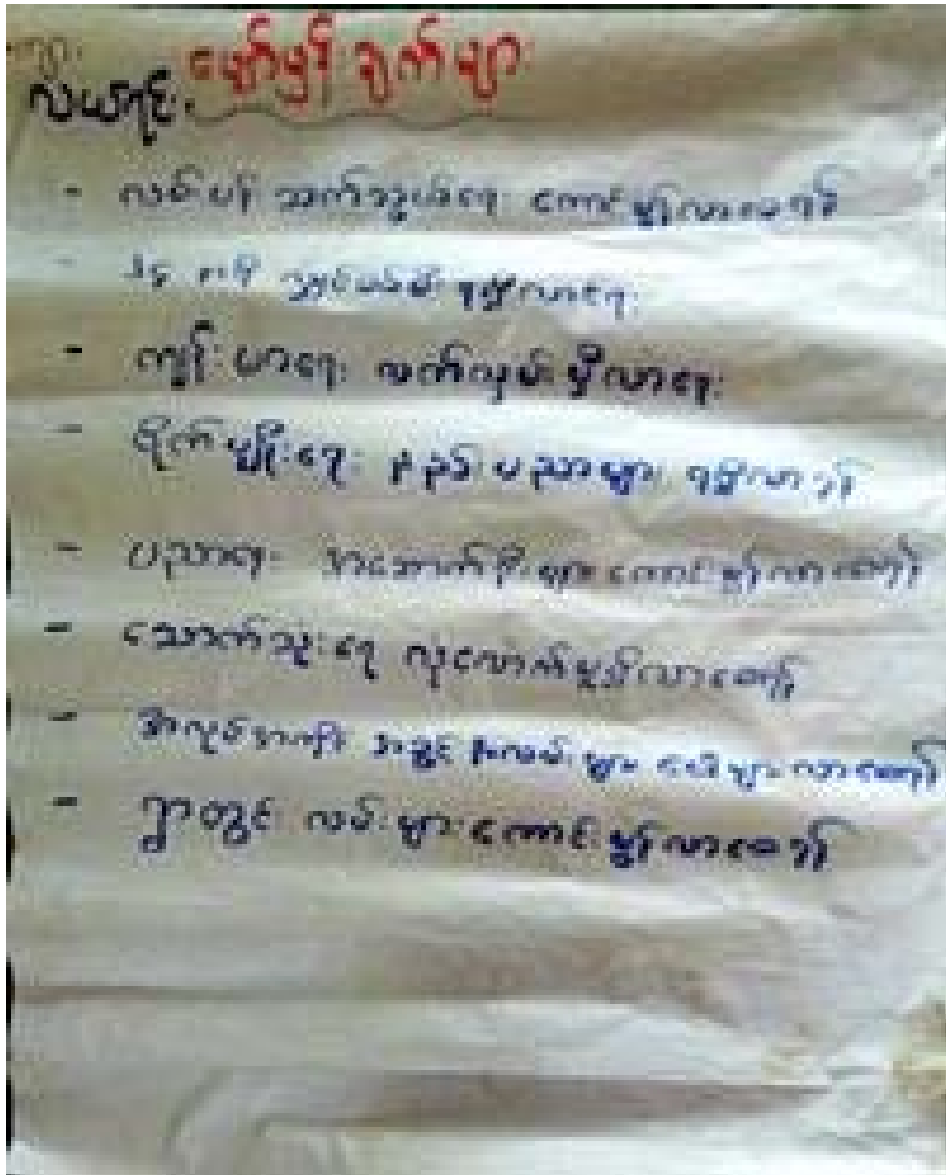 ရွာ
လယ်ရင်း မျှော်မှန်းချက်များ
- လမ်းပန်းဆက်သွယ်ရေး ကောင်းမွန်လာစေရန်
- မီး ရရှိလာရေး
- ကျန်းမာရေး လက်လှမ်းမှီလာရေး
- စိုက်ပျိုးရေး နည်းပညာများ ရရှိလာရန်
- ပညာရေး အဆောက်အဦးများ ကောင်းမွန်လာစေရန်
- သောက်သုံးရေ လုံလောက်မှုရှိလာစေရန်
- အလုပ်အကိုင် အခွင့်အလမ်းများ ပေါများလာစေရန်
- ရွာတွင်း လမ်းများကောင်းမွန်လာစေရန်